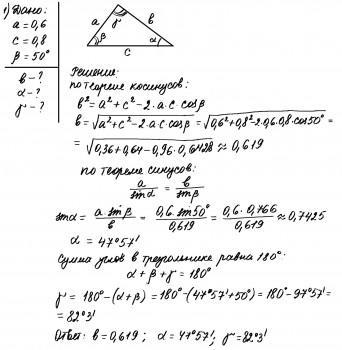 1) Дано:
a = 0,6
c = 0,8
β = 50°
в - ?
α - ?
γ - ?
a γ в
β α
c
Решение:
по теореме косинусов:
в² = a² + c² - 2·a·c·cosβ
в = √(a² + c² - 2·a·c·cosβ) = √(0,6² + 0,8² - 2·0,6·0,8·cos50°) =
= √(0,36 + 0,64 - 0,96·0,6428) ≈ 0,619
по теореме синусов:
a/sinα = в/sinβ
sinα = a·sinβ/в = 0,6·sin50°/0,619 = 0,6·0,766/0,619 ≈ 0,7425
α = 47°57'
Сумма углов в треугольнике равна 180°
α + β + γ = 180°
γ = 180° - (α+β) = 180° - (47°57' + 50°) = 180° - 97°57' =
= 82°3'
Ответ: в = 0,619 ; α = 47°57' ; γ = 82°3'